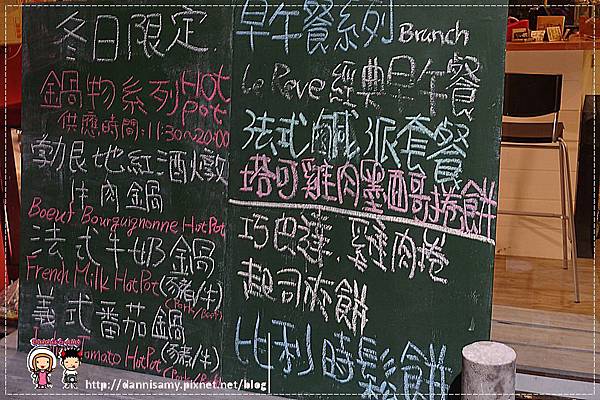 冬日限定
鍋物系列Hot Pot
供應時間:11:30~20:00
勃艮地紅酒燉
牛肉鍋
Boeuf Bourguignonne HotPot
法式牛奶鍋
French Milk HotPot(豬/牛)
(Pork/Beef)
義式番茄鍋
Tomato HotPot(豬/牛)
(Pork/Beef)
早午餐系列 Brunch
Le Reve 經典早午餐
法式鹹派套餐
塔可雞肉墨西哥捲餅
巧巴達.雞肉捲
起司夾餅
比利時鬆餅
http://dannisamy.pixnet.net/blog